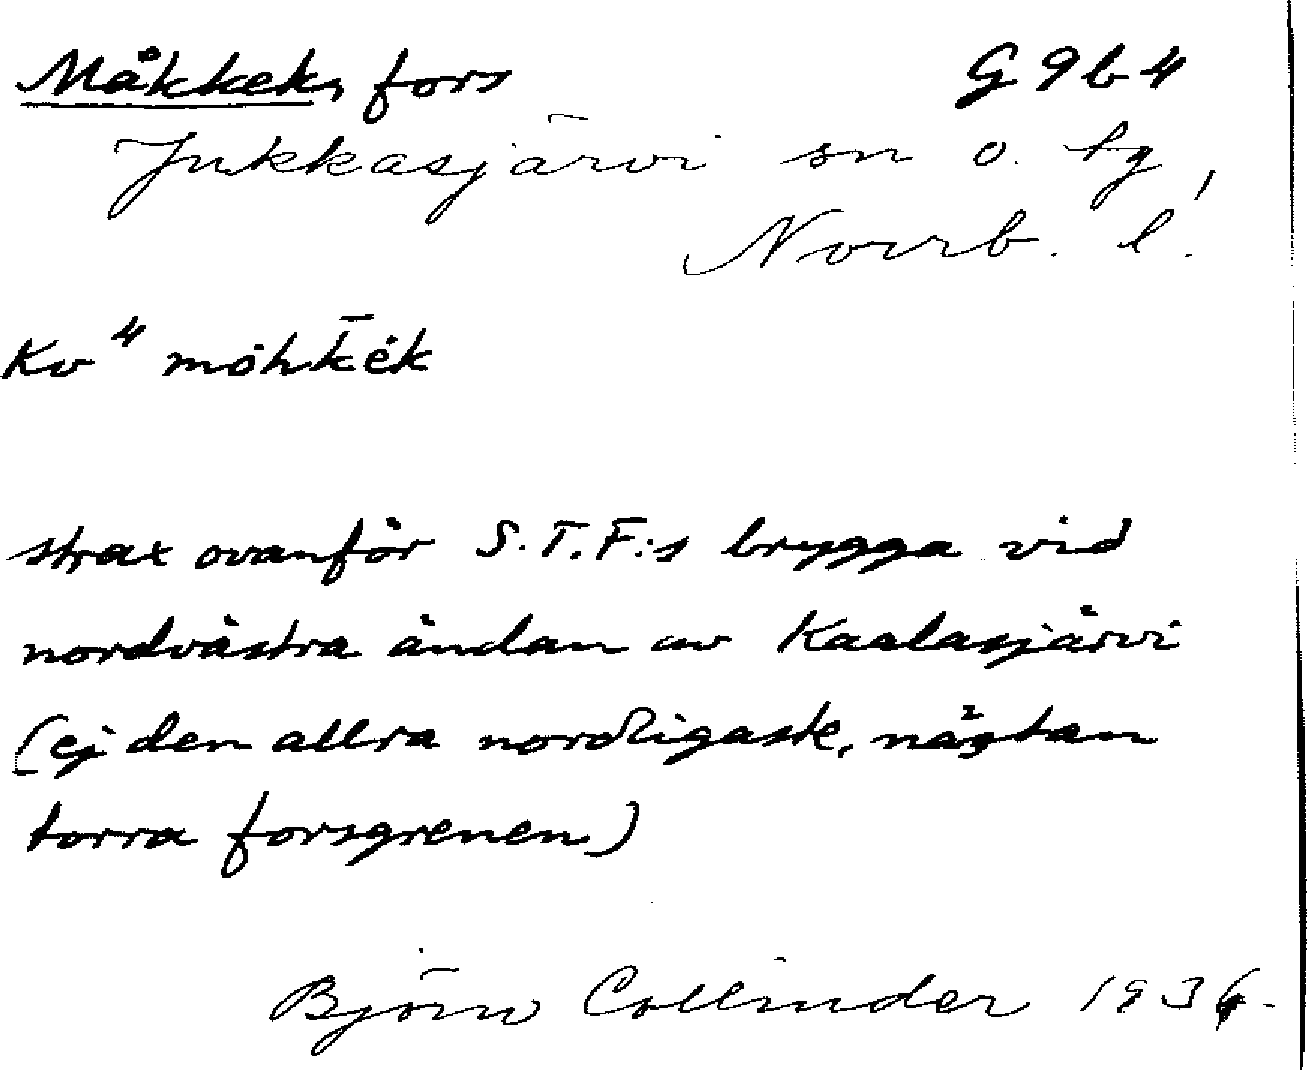 Måkkeks fors G 9 b 4
Jukkasjärvi sn o. tg,
Norrb. l.
Kv⁴ möhk̄ek
strax ovanför S.T.F:s brygga vid
nordvästra ändan av Kaalasjärvi
(ej den allra nordligaste, nästan
torra forsgrenen)
Björn Collinder